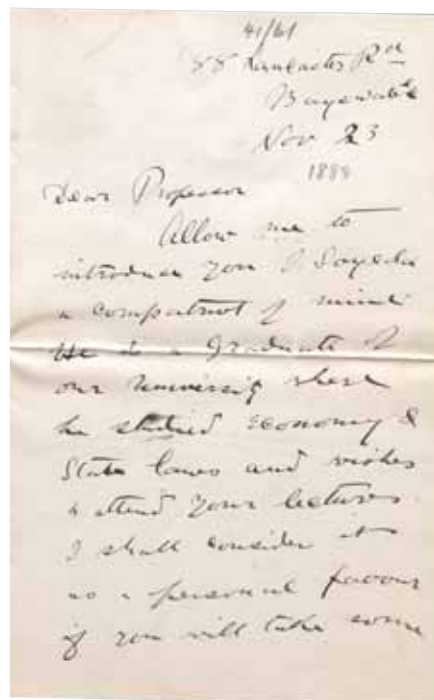 41/61
88 Lancaster Rd
Bayswater
Nov 23
1889
Dear Professor
Allow me to
introduce you J. Soyeda
a compatriot of mine
He is a Graduate of
our University where
he studied Economy &
State laws and wishes
to attend your lectures.
I shall consider it
as a personal favour
if you will take some